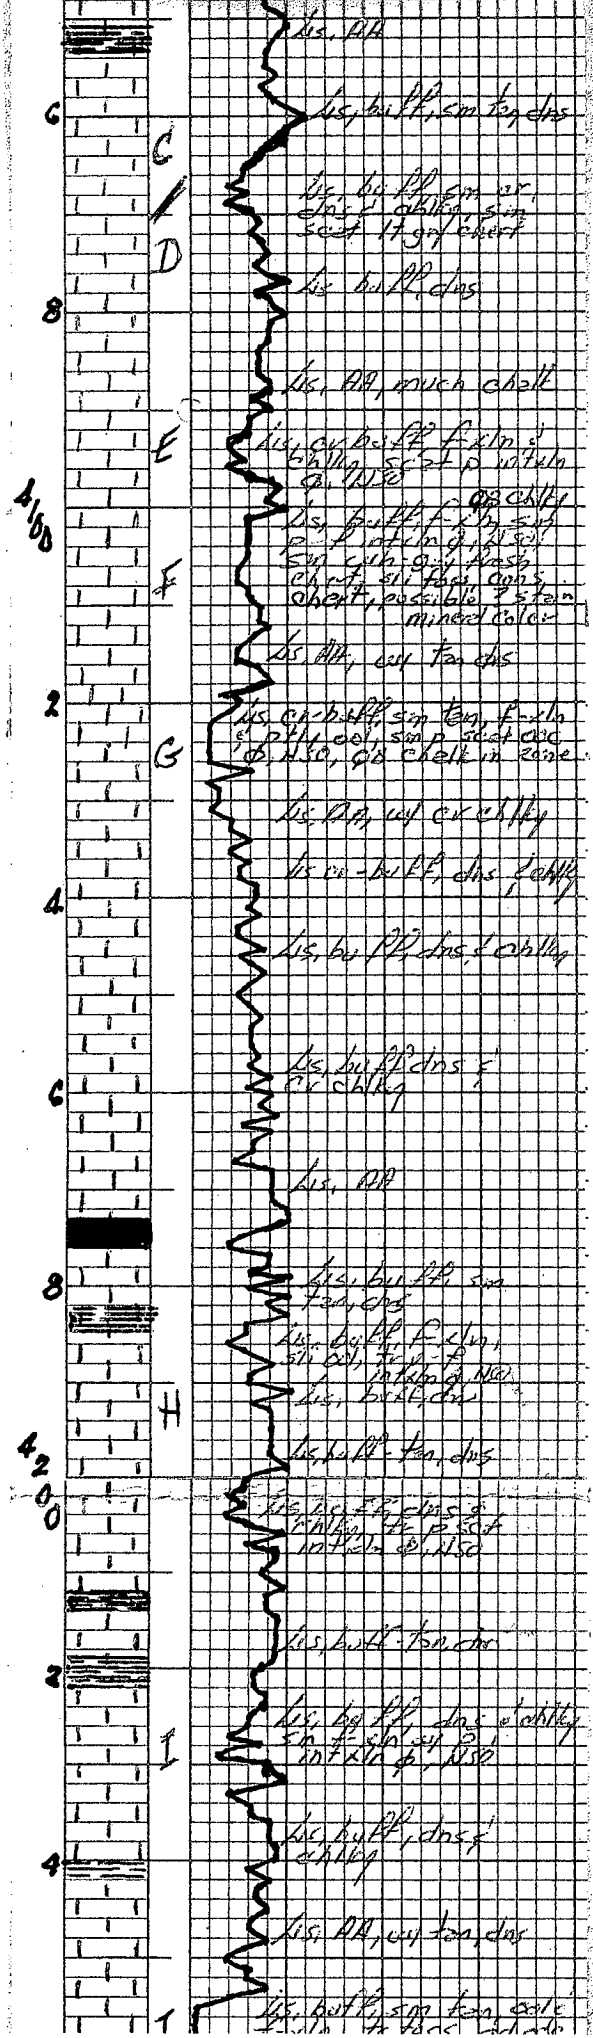 Lis, AA
6
Lis, buff, sm tan, dns
C
/
Lis, buff, sm cr,
dns & chlky, sm
scat lt gry chert
D
Lis buff, dns
8
Lis, AA, much chalk
E
Lis, cr buff f-xln &
chlky, scat p intxln
φ, NSO
gs chlky
4100
Lis, buff, f-xln, sm
p-f intxln φ, NSO
sm gry fresh
F
chert, sli foss, ons
chert, possible ? stain
mineral color
Lis, AA, w/ tan dns
2
Lis, cr-buff, sm tan, f-xln
& ptly ool, sm p scat ooc
G
φ, NSO, gs chalk in zone
Lis AA, w/ cr chlky
Lis cr-buff, dns & chlky
4
Lis, buff, dns & chlky
Lis, buff dns &
cr chlky
6
Lis, AA
8
Lis, buff, sm
tan, dns
Lis, buff, f-xln,
sli ool, tr p-f
intxln φ, NSO
Lis, buff, dns
H
Lis, buff-tan, dns
4200
Lis, buff, dns &
chlky, tr p scat
intxln φ, NSO
Lis, buff-tan, dns
2
Lis, buff, dns & chlky
sm f-xln w/ p
I
intxln φ, NSO
Lis, buff, dns &
chlky
4
Lis, AA, w/ tan, dns
Lis, buff, sm tan